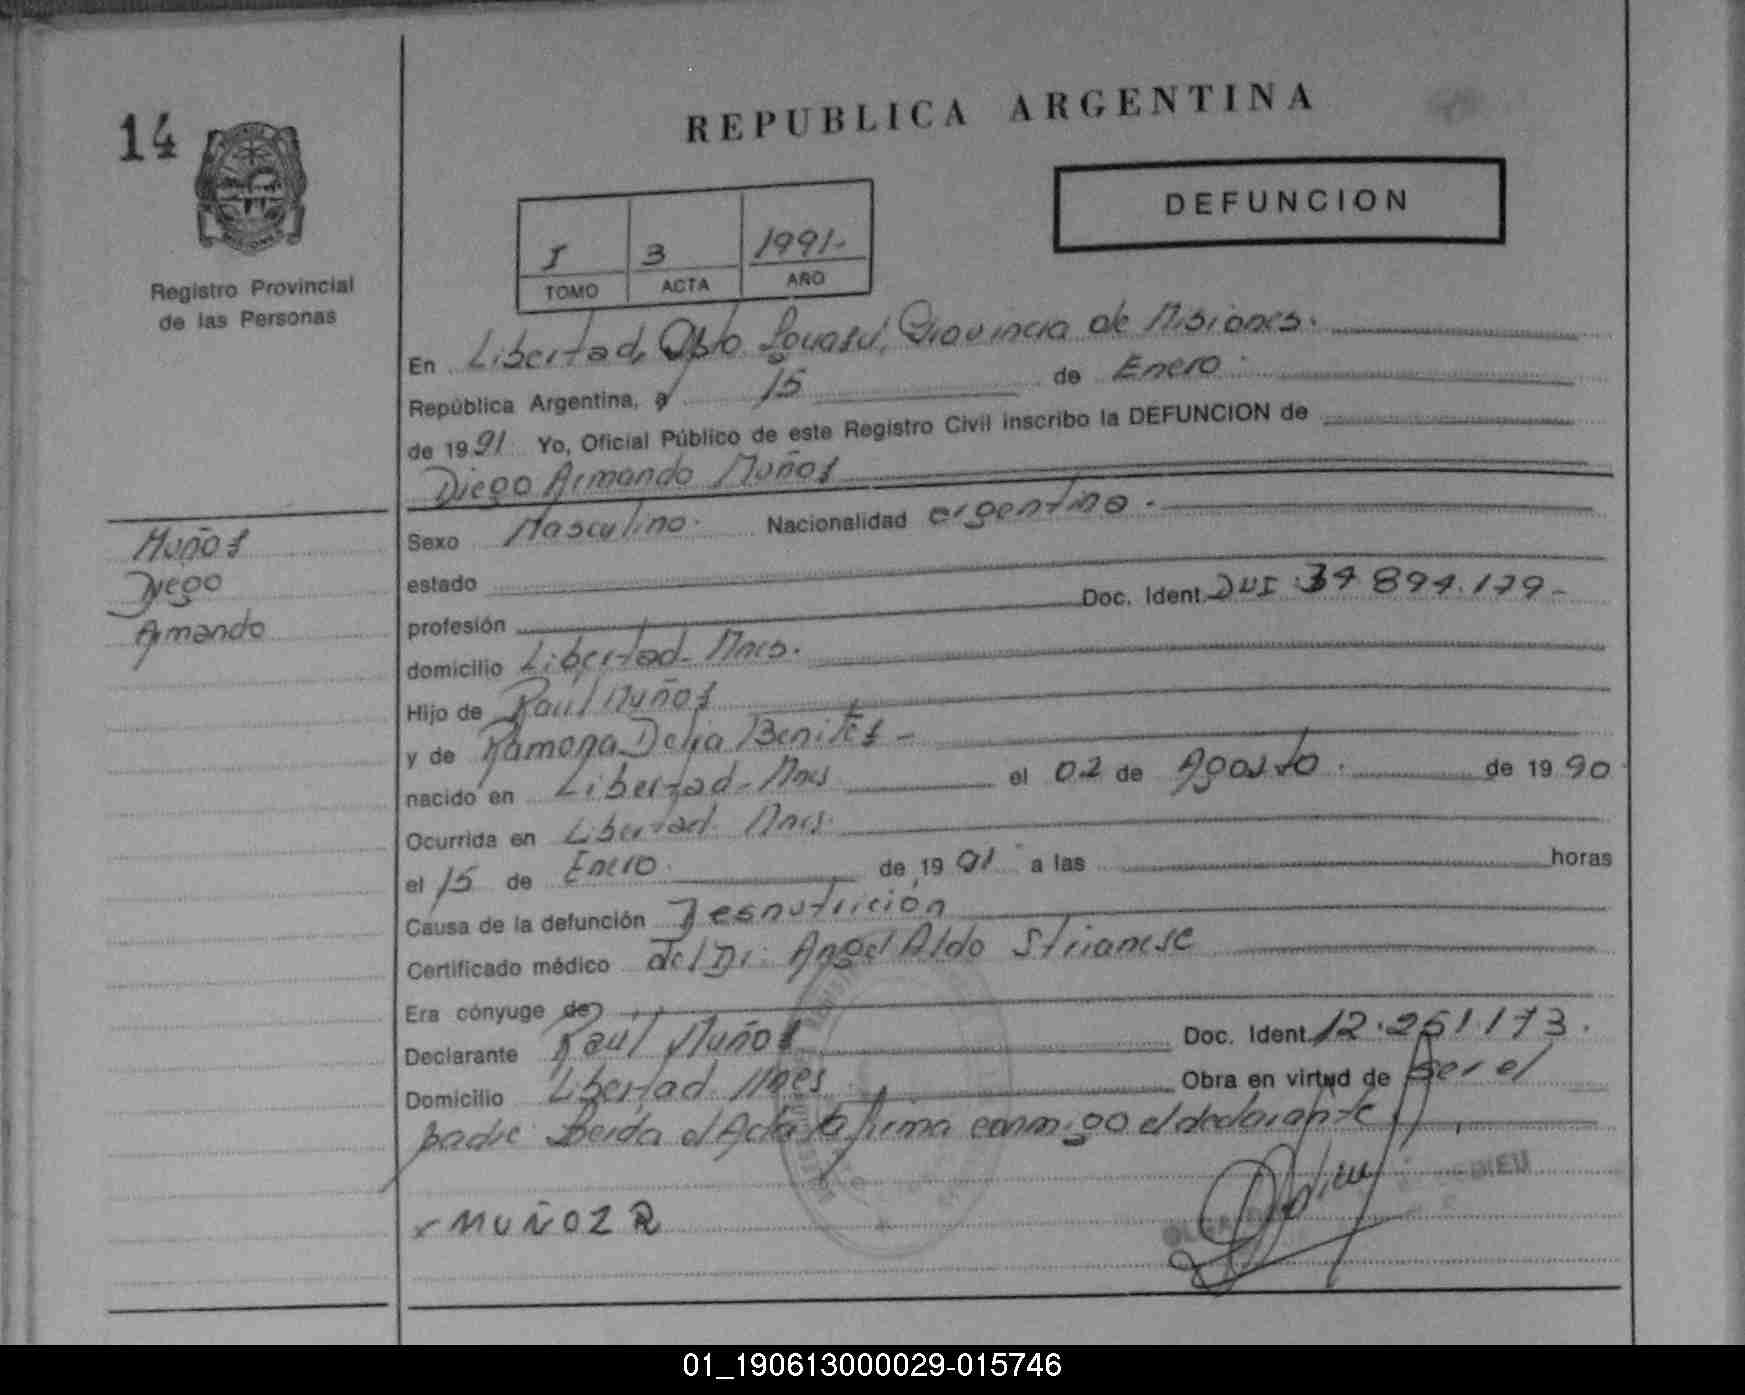 14
REPUBLICA ARGENTINA
DEFUNCION
I 3 1991-
TOMO ACTA AÑO
Registro Provincial
de las Personas
En Libertad, Dpto Iguasú, Provincia de Misiones.
República Argentina, a 15 de Enero
de 1991 Yo, Oficial Público de este Registro Civil inscribo la DEFUNCION de
Diego Armando Muñoz
Muñoz
Diego
Armando
Sexo Masculino. Nacionalidad argentina.
estado
profesión Doc. Ident. DNI 34.894.179-
domicilio Libertad-Mnes.
Hijo de Raúl Muñoz
y de Ramona Delia Benítez-
nacido en Libertad-Mnes el 02 de Agosto. de 1990
Ocurrida en Libertad. Mnes.
el 15 de Enero. de 1991 a las horas
Causa de la defunción Desnutrición
Certificado médico del Dr. Angel Aldo Strianese
Era cónyuge de
Declarante Raúl Muñoz Doc. Ident. 12.251.173.
Domicilio Libertad. Mnes Obra en virtud de ser el
padre Leída el Acta la firma conmigo el declarante
x MUÑOZ R
01_190613000029-015746